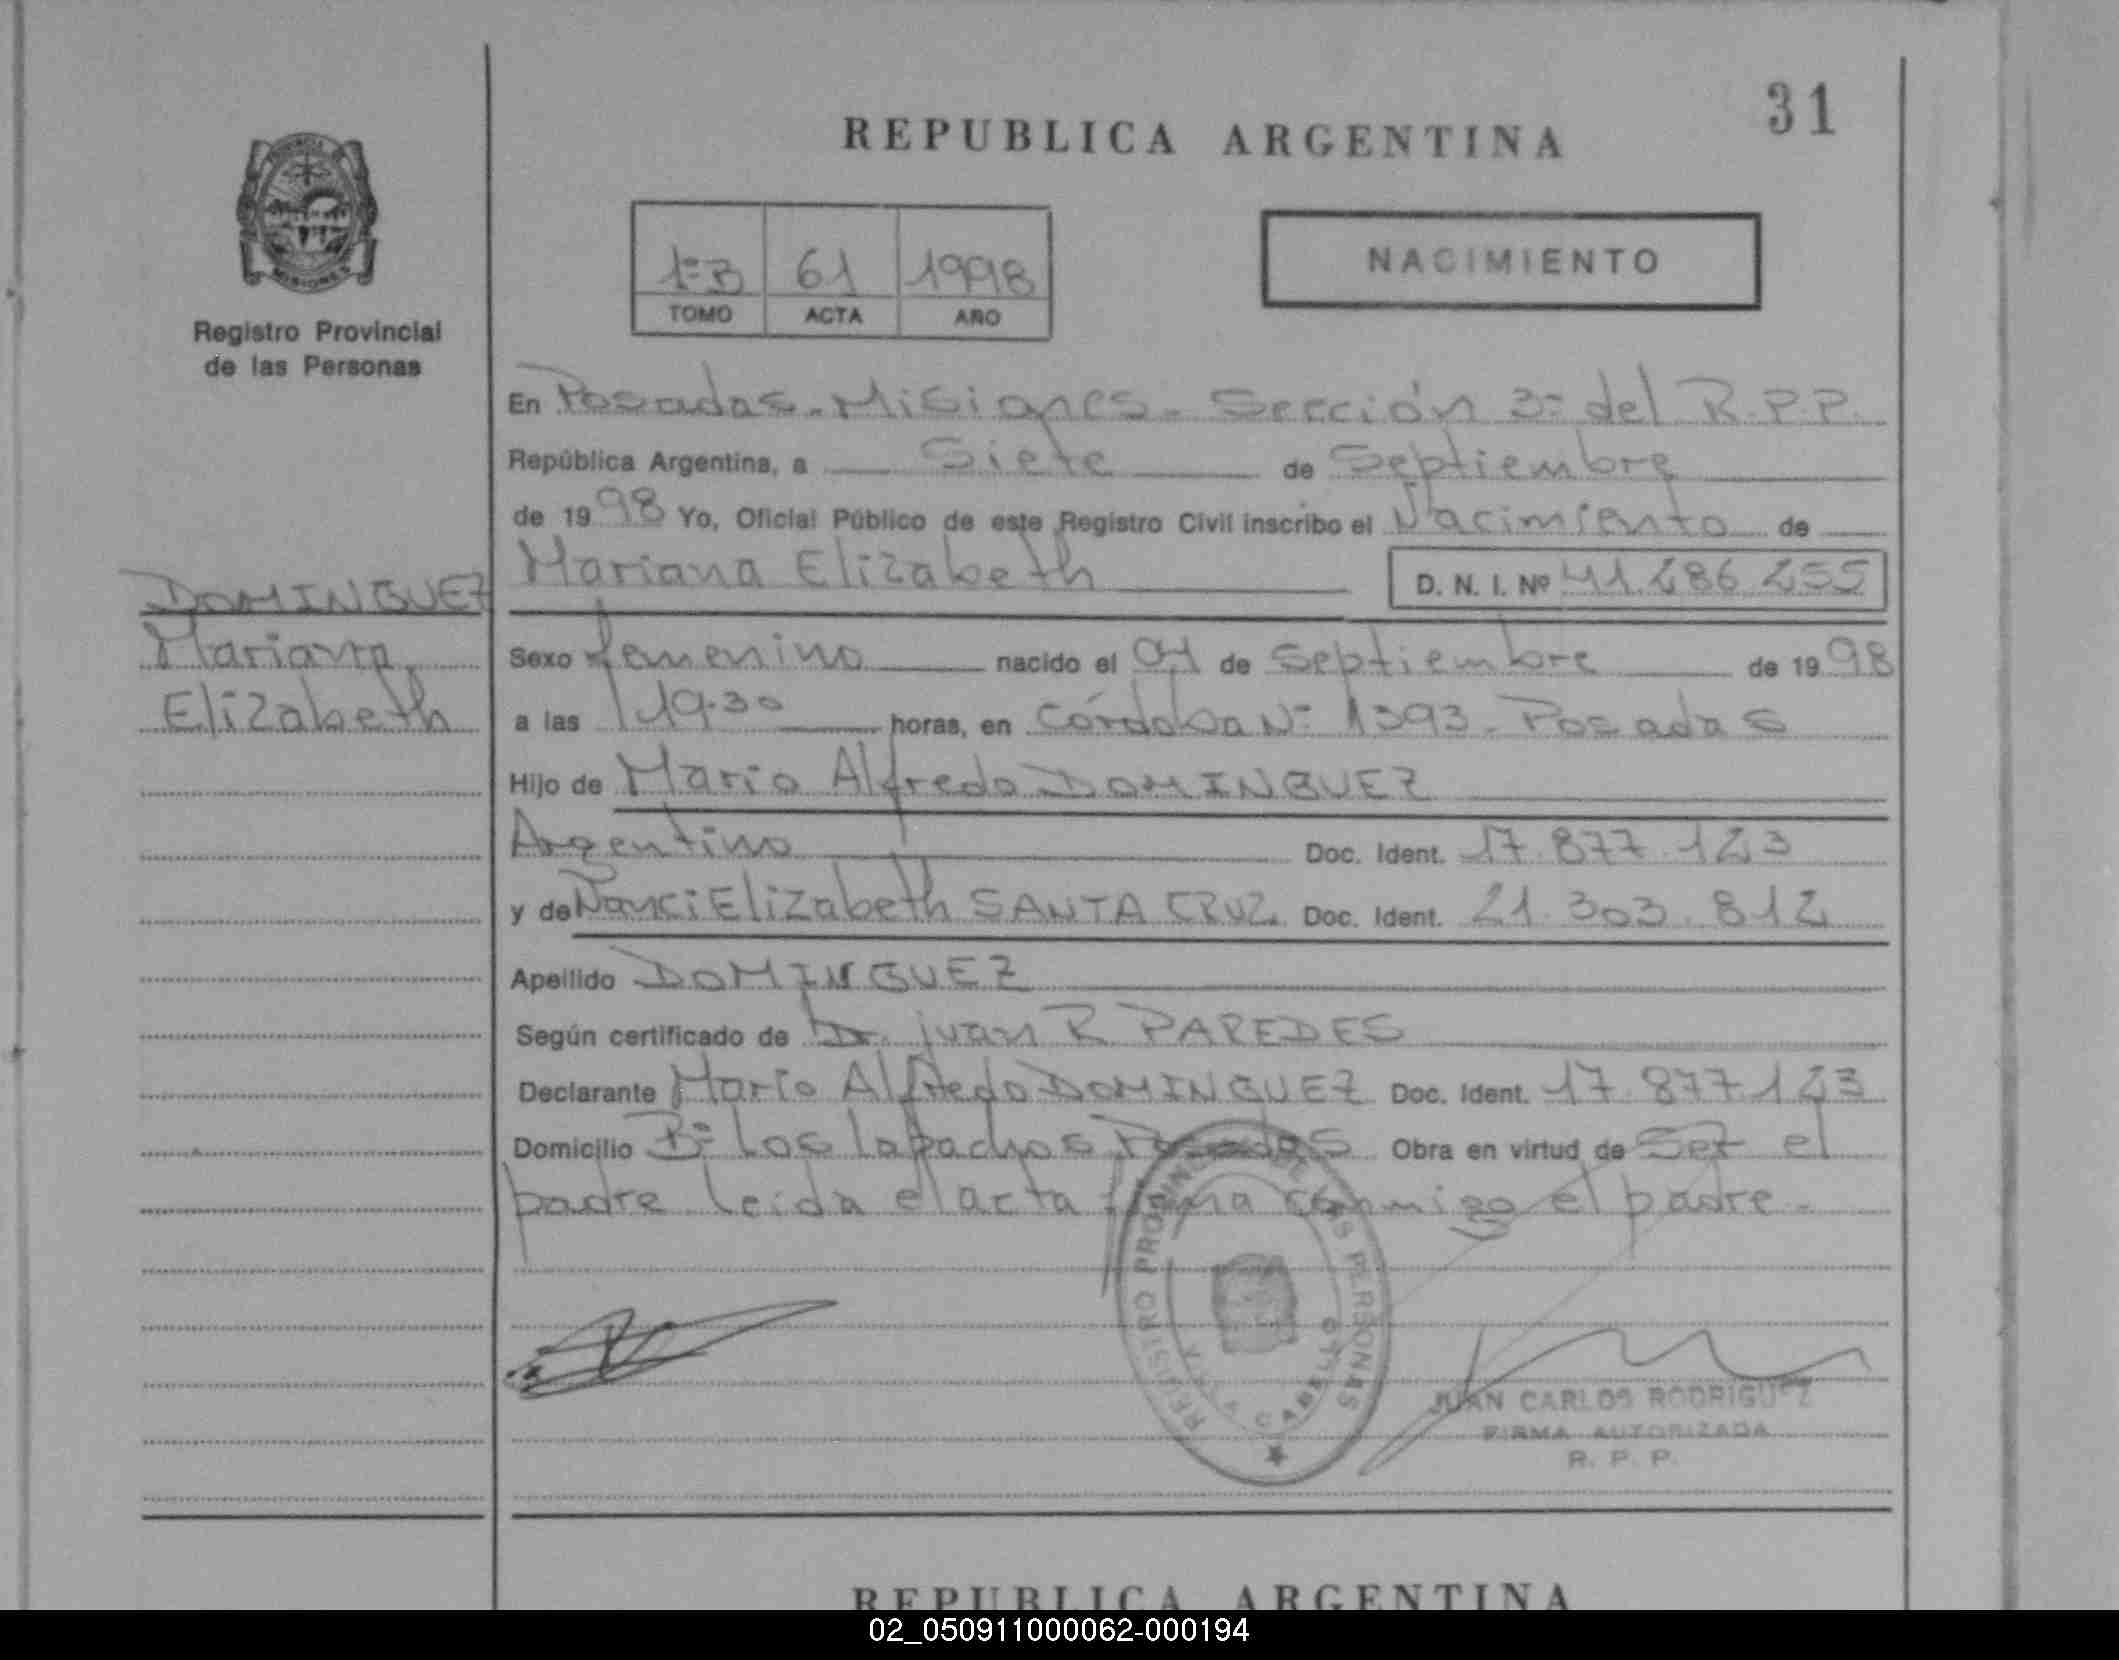 31
REPUBLICA ARGENTINA
1º B 61 1998
TOMO ACTA AÑO
NACIMIENTO
MISIONES
Registro Provincial
de las Personas
En Posadas - Misiones - Sección 3º del R.P.P.
República Argentina, a Siete de Septiembre
de 1998 Yo, Oficial Público de este Registro Civil inscribo el Nacimiento de
Mariana Elizabeth D. N. I. Nº 41.286.255
DOMINGUEZ
Mariana
Elizabeth
Sexo femenino nacido el 04 de Septiembre de 1998
a las 19.30 horas, en Córdoba Nº 1393 - Posadas
Hijo de Mario Alfredo DOMINGUEZ
Argentino Doc. Ident. 17.877.123
y de Nanci Elizabeth SANTA CRUZ Doc. Ident. 21.303.812
Apellido DOMINGUEZ
Según certificado de Dr. Juan R PAREDES
Declarante Mario Alfredo DOMINGUEZ Doc. Ident. 17.877.123
Domicilio Bº Los lapachos Posadas Obra en virtud de Ser el
padre leida el acta firma conmigo el padre.
REGISTRO PROVINCIAL DE LAS PERSONAS
CABELLO
JUAN CARLOS RODRIGUEZ
FIRMA AUTORIZADA
R. P. P.
REPUBLICA ARGENTINA
02_050911000062-000194